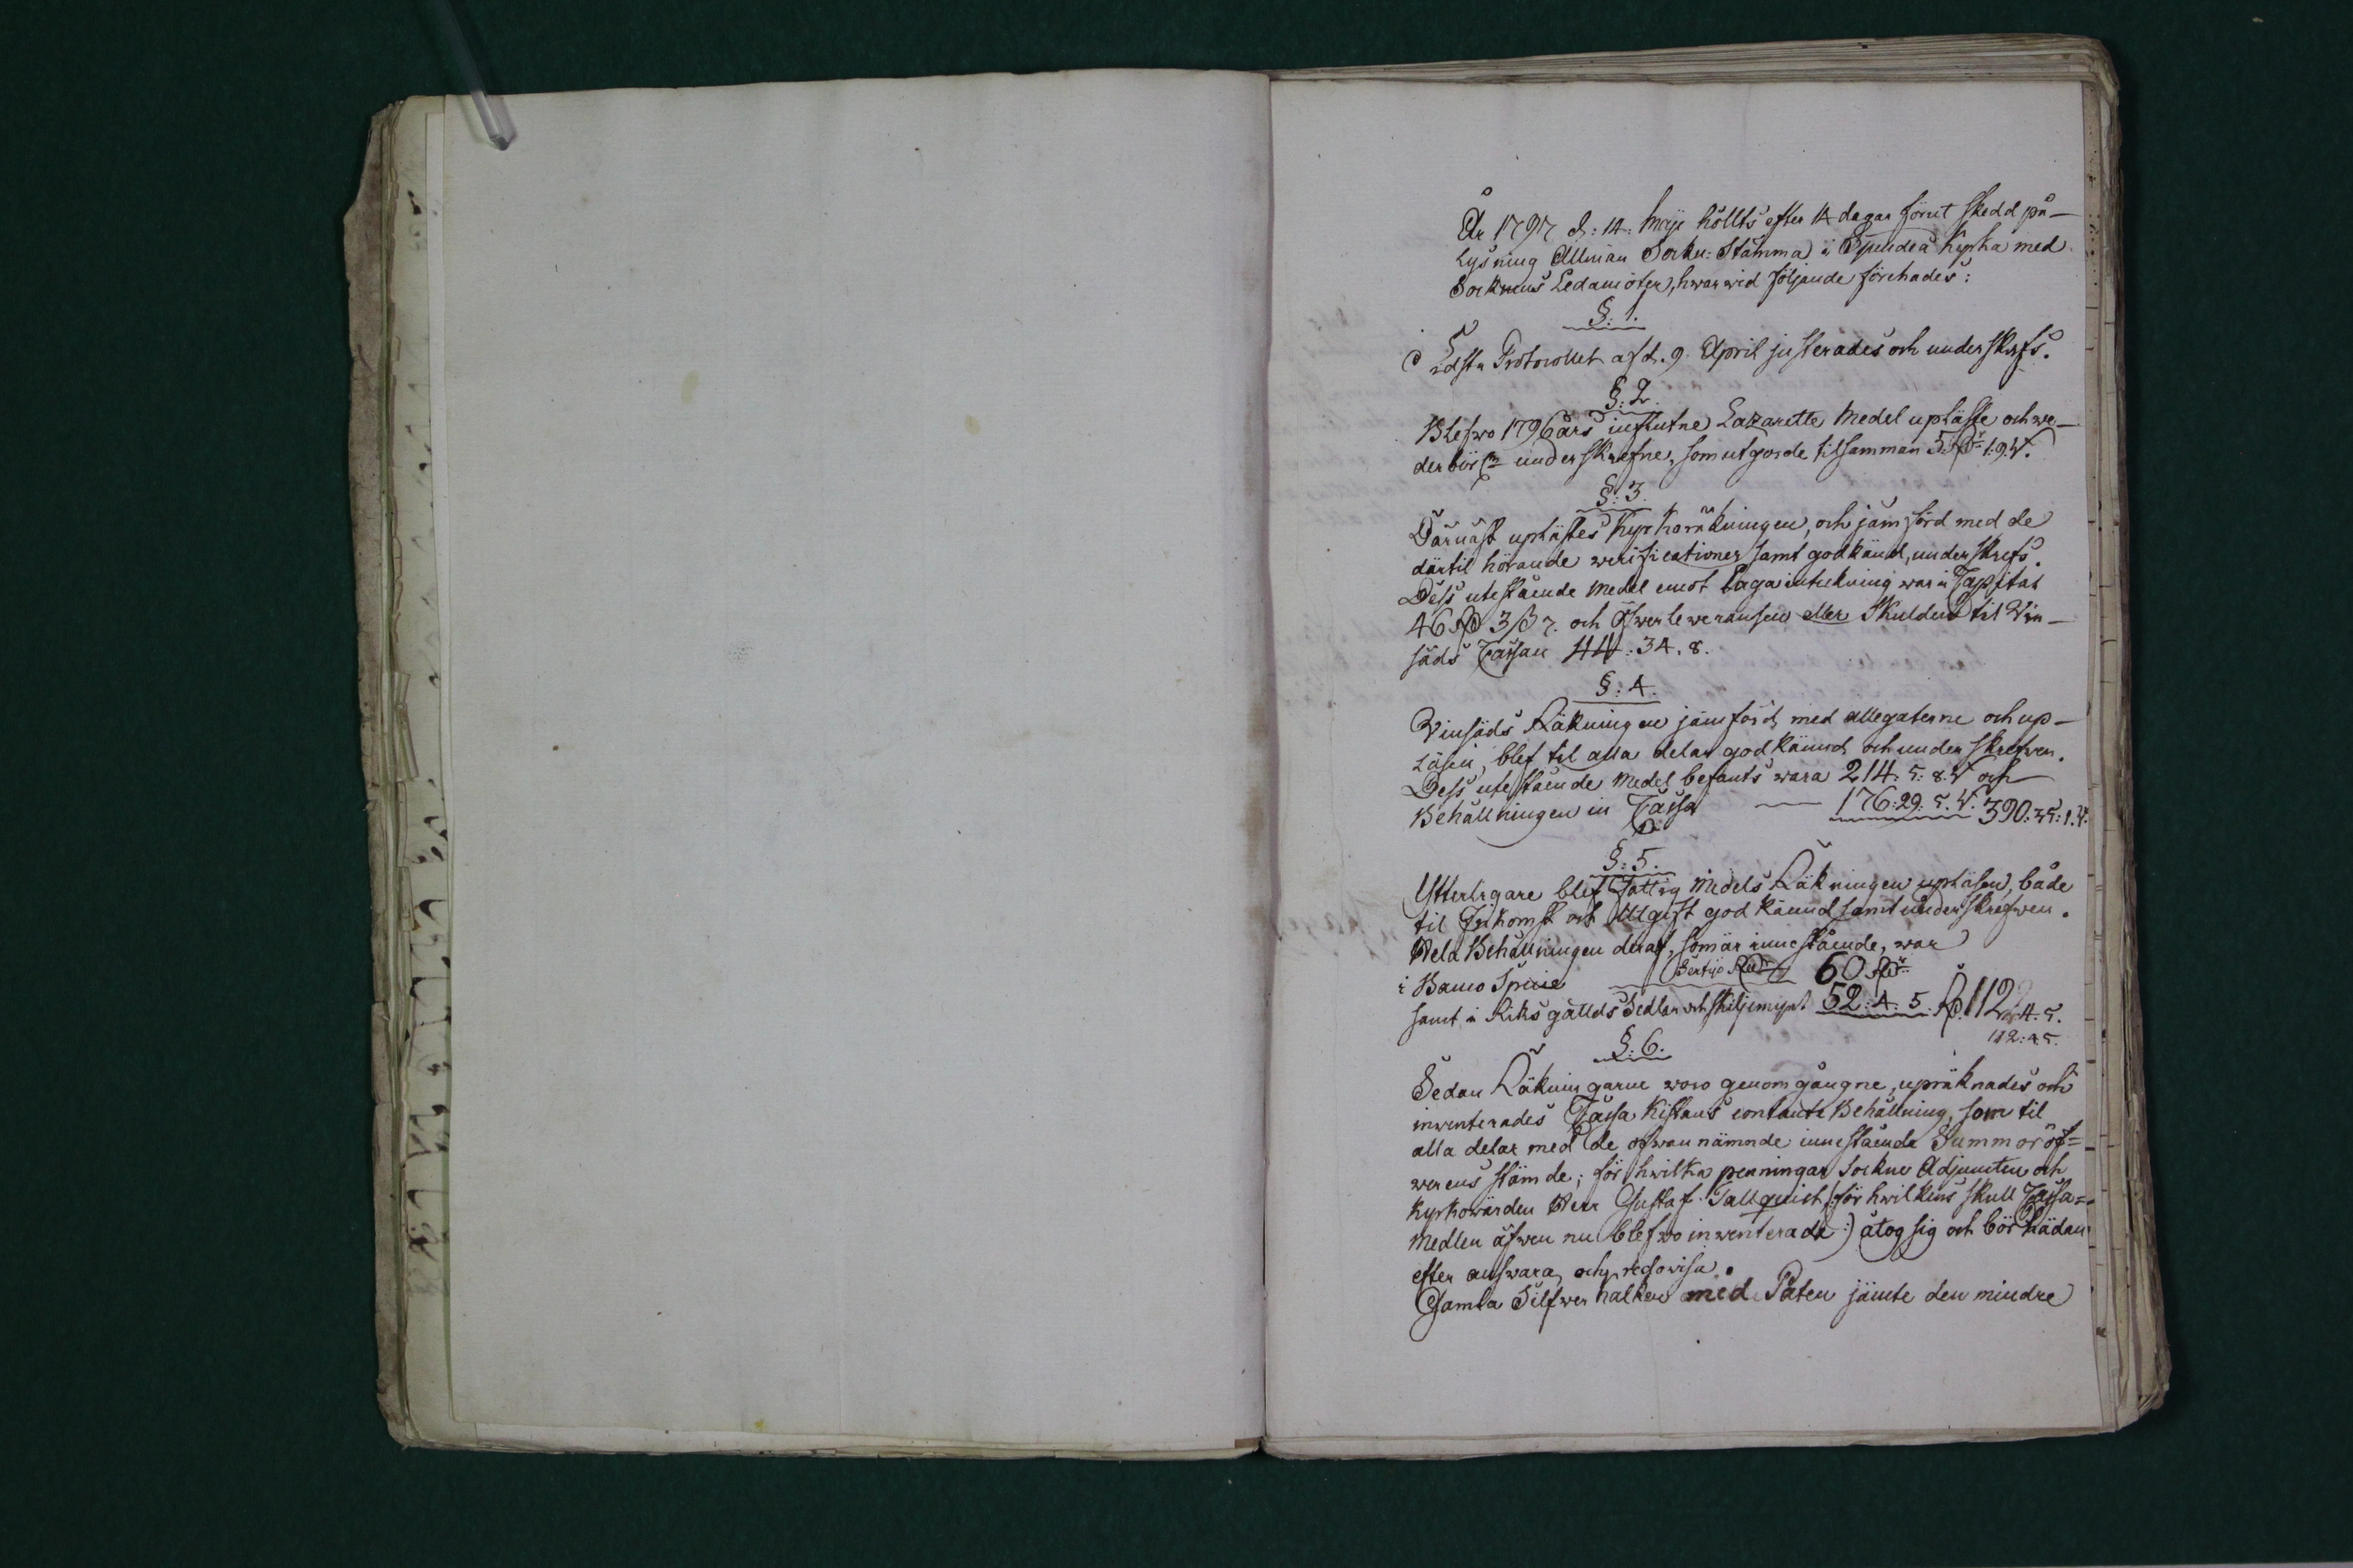 År 1797 d: 14: Maji höllts efter 14 dagar förut skedd på-
lysning Allmän Sockn: Stämma i Spindeå Kyrka med
Socknens Ledamöter, hwarwid följande förehades:
§: 1.
Lästes Protocollet af d. 9. April justerades och underskrefs.
§: 2.
Blefwo 1796 års influtne Lazaretts Medel upläste och we-
derbör: underskrefne, som utgorde tilsamman 5 Rdr 1: 9. W.
§: 3.
Därnäst uplästes Kyrkoräkningen, och jämförd med de
därtil hörande verificationer samt godkänd, underskrefs.
Dess utestående Medel emot laga inteckning war i Capital
46 Rd 3 ß 7. och Öfwerleveransen eller Skulden til Vin-
säds Cassan 44: 34. 8.
§: 4.
Vinsäds Räkningen jämförd med allegaterne och up-
läsen, blef til alla delar godkännd och underskrefwen.
Dess utestående Medel befants wara 214: 5: 8. W och
Behållningen in Cassa 176: 29: 5. W. 390: 35: 1. W.
§: 5.
Ytterligare blef Fattig Medels Räkningen upläsen, både
til Inkomst och Utgift godkännd samt underskrefwen.
Hela Behållningen deraf, som är innestående, war
i Banco Specie Sextijo Rdr 60 Rdr
samt i Riksgällds Sedlar och skiljemynt 52: 4: 5. Rd. 112: 4. 5.
112: 4. 5.
§: 6.
Sedan Räkningarne woro genomgångne, upräknades och
inventerades Cassa Kistans contanta Behållning, som til
alla delar med de ofwannämnde innestående Summor öf=
werens stämde; för hwilka penningar Sockne Adjuncten och
Kyrkowärden Herr Gustaf Tallquist (:för hwilkens skull Cassa=
Medlen äfwen nu blefwo inventerade:) åtog sig och bör hädan
efter answara och redowisa.
Gamla Silfwer kalken med Paten jämte den mindre